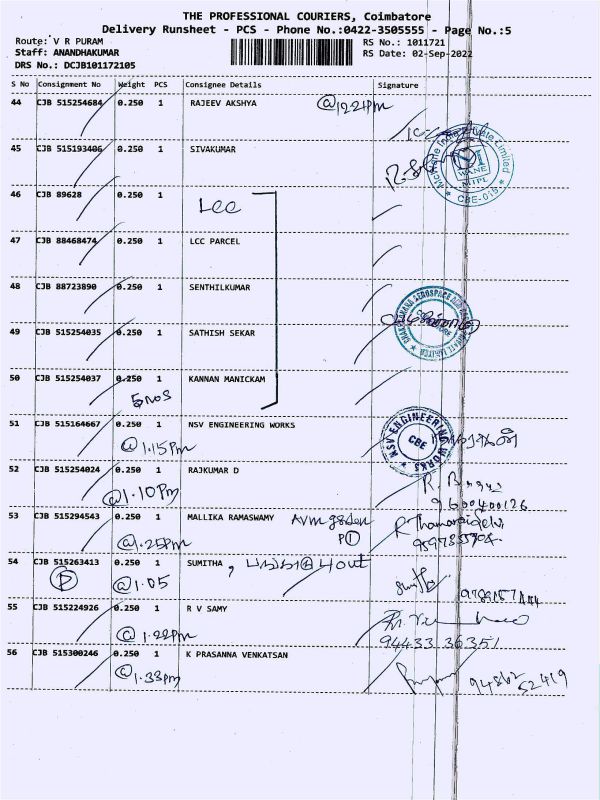 THE PROFESSIONAL COURIERS, Coimbatore
Delivery Runsheet - PCS - Phone No.:0422-3505555 - Page No.:5
Route: V R PURAM RS No.: 1011721
Staff: ANANDHAKUMAR RS Date: 02-Sep-2022
DRS No.: DCJB101172105
S No Consignment No Weight PCS Consignee Details Signature
44 CJB 515254684 0.250 1 RAJEEV AKSHYA @12.21pm
45 CJB 515193406 0.250 1 SIVAKUMAR
WANE
MTPL
CBE-015
46 CJB 89628 0.250 1
LCC
47 CJB 88468474 0.250 1 LCC PARCEL
48 CJB 88723890 0.250 1 SENTHILKUMAR
49 CJB 515254035 0.250 1 SATHISH SEKAR
50 CJB 515254037 0.250 1 KANNAN MANICKAM
5 nos
51 CJB 515164667 0.250 1 NSV ENGINEERING WORKS
NSV ENGINEERING WORKS
CBE
@1.15pm
52 CJB 515254024 0.250 1 RAJKUMAR D
@1.10pm
9600400126
53 CJB 515294543 0.250 1 MALLIKA RAMASWAMY Avm garden
P1
@1.25pm
54 CJB 515263413 0.250 1 SUMITHA
P @1.05
55 CJB 515224926 0.250 1 R V SAMY
@1.22pm 94433 36351
56 CJB 515300246 0.250 1 K PRASANNA VENKATSAN
@1.33pm 94862
52419